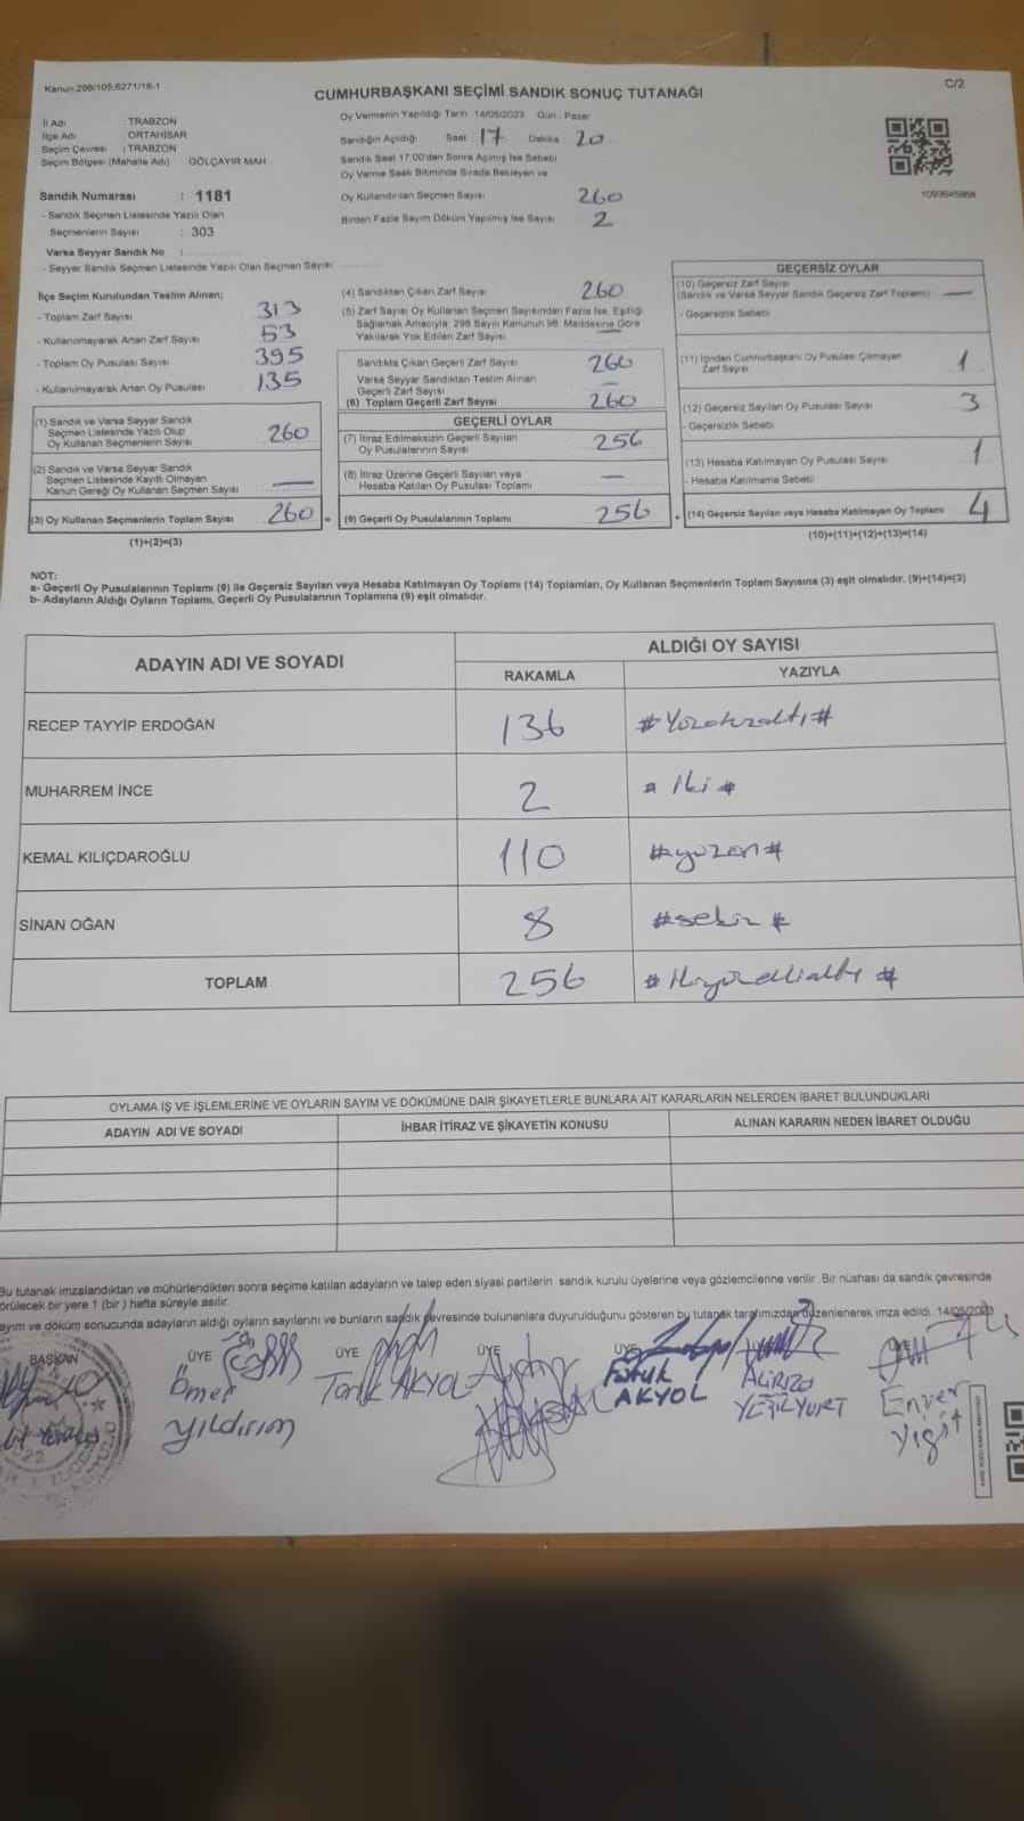 Kanun 298/105,6271/16-1
C/2
CUMHURBAŞKANI SEÇİMİ SANDIK SONUÇ TUTANAĞI
İl Adı TRABZON
İlçe Adı ORTAHİSAR
Seçim Çevresi : TRABZON
Seçim Bölgesi (Mahalle Adı) GÖLÇAYIR MAH
Oy Vermenin Yapıldığı Tarih 14/05/2023 Gün : Pazar
Sandığın Açıldığı Saat 17 Dakika 20
Sandık Saat 17.00'dan Sonra Açılmış İse Sebebi
Oy Verme Saati Bitiminde Sırada Bekleyen ve
Oy Kullandırılan Seçmen Sayısı 260
Birden Fazla Sayım Döküm Yapılmış İse Sayısı 2
Sandık Numarası : 1181
- Sandık Seçmen Listesinde Yazılı Olan
Seçmenlerin Sayısı : 303
Varsa Seyyar Sandık No :
- Seyyar Sandık Seçmen Listesinde Yazılı Olan Seçmen Sayısı
İlçe Seçim Kurulundan Teslim Alınan;
- Toplam Zarf Sayısı 313
- Kullanılmayarak Artan Zarf Sayısı 53
- Toplam Oy Pusulası Sayısı 395
- Kullanılmayarak Artan Oy Pusulası 135
(1) Sandık ve Varsa Seyyar Sandık
Seçmen Listesinde Yazılı Olup
Oy Kullanan Seçmenlerin Sayısı 260
(2) Sandık ve Varsa Seyyar Sandık
Seçmen Listesinde Kayıtlı Olmayan
Kanun Gereği Oy Kullanan Seçmen Sayısı —
(3) Oy Kullanan Seçmenlerin Toplam Sayısı 260
(1)+(2)=(3)
(4) Sandıktan Çıkan Zarf Sayısı 260
(5) Zarf Sayısı Oy Kullanan Seçmen Sayısından Fazla İse, Eşitliği
Sağlamak Amacıyla, 298 Sayılı Kanunun 98. Maddesine Göre
Yakılarak Yok Edilen Zarf Sayısı —
Sandıkta Çıkan Geçerli Zarf Sayısı 260
Varsa Seyyar Sandıktan Teslim Alınan
Geçerli Zarf Sayısı —
(6) Toplam Geçerli Zarf Sayısı 260
GEÇERLİ OYLAR
(7) İtiraz Edilmeksizin Geçerli Sayılan
Oy Pusulalarının Sayısı 256
(8) İtiraz Üzerine Geçerli Sayılan veya
Hesaba Katılan Oy Pusulası Toplamı —
(9) Geçerli Oy Pusulalarının Toplamı 256
GEÇERSİZ OYLAR
(10) Geçersiz Zarf Sayısı
(Sandık ve Varsa Seyyar Sandık Geçersiz Zarf Toplamı) —
- Geçersizlik Sebebi
(11) İçinden Cumhurbaşkanı Oy Pusulası Çıkmayan
Zarf Sayısı 1
(12) Geçersiz Sayılan Oy Pusulası Sayısı 3
- Geçersizlik Sebebi
(13) Hesaba Katılmayan Oy Pusulası Sayısı 1
- Hesaba Katılmama Sebebi
(14) Geçersiz Sayılan veya Hesaba Katılmayan Oy Toplamı 4
(10)+(11)+(12)+(13)=(14)
NOT:
a- Geçerli Oy Pusulalarının Toplamı (9) ile Geçersiz Sayılan veya Hesaba Katılmayan Oy Toplamı (14) Toplamları, Oy Kullanan Seçmenlerin Toplam Sayısına (3) eşit olmalıdır. (9)+(14)=(3)
b- Adayların Aldığı Oyların Toplamı, Geçerli Oy Pusulalarının Toplamına (9) eşit olmalıdır.
ADAYIN ADI VE SOYADI ALDIĞI OY SAYISI
RAKAMLA YAZIYLA
RECEP TAYYİP ERDOĞAN 136 #Yüzotuzaltı#
MUHARREM İNCE 2 # İki #
KEMAL KILIÇDAROĞLU 110 #yüzon#
SİNAN OĞAN 8 #sekiz #
TOPLAM 256 # İkiyüzellialtı #
OYLAMA İŞ VE İŞLEMLERİNE VE OYLARIN SAYIM VE DÖKÜMÜNE DAİR ŞİKAYETLERLE BUNLARA AİT KARARLARIN NELERDEN İBARET BULUNDUKLARI
ADAYIN ADI VE SOYADI İHBAR İTİRAZ VE ŞİKAYETİN KONUSU ALINAN KARARIN NEDEN İBARET OLDUĞU
Bu tutanak imzalandıktan ve mühürlendikten sonra seçime katılan adayların ve talep eden siyasi partilerin sandık kurulu üyelerine veya gözlemcilerine verilir. Bir nüshası da sandık çevresinde
görülecek bir yere 1 (bir) hafta süreyle asılır.
Sayım ve döküm sonucunda adayların aldığı oyların sayılarını ve bunların sandık çevresinde bulunanlara duyurulduğunu gösteren bu tutanak tarafımızdan düzenlenerek imza edildi. 14/05/2023
BAŞKAN ÜYE ÜYE ÜYE ÜYE
Ömer Yıldırım
Tarık AKYOL
Faruk AKYOL
ALİRIZA YEŞİLYURT
Enver Yiğit